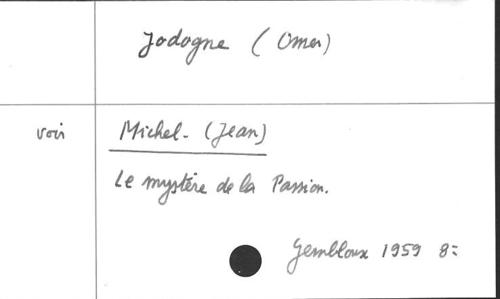 Jodogne (Omer)
voir Michel - (Jean)
Le mystère de la Passion.
Gembloux 1959 8=